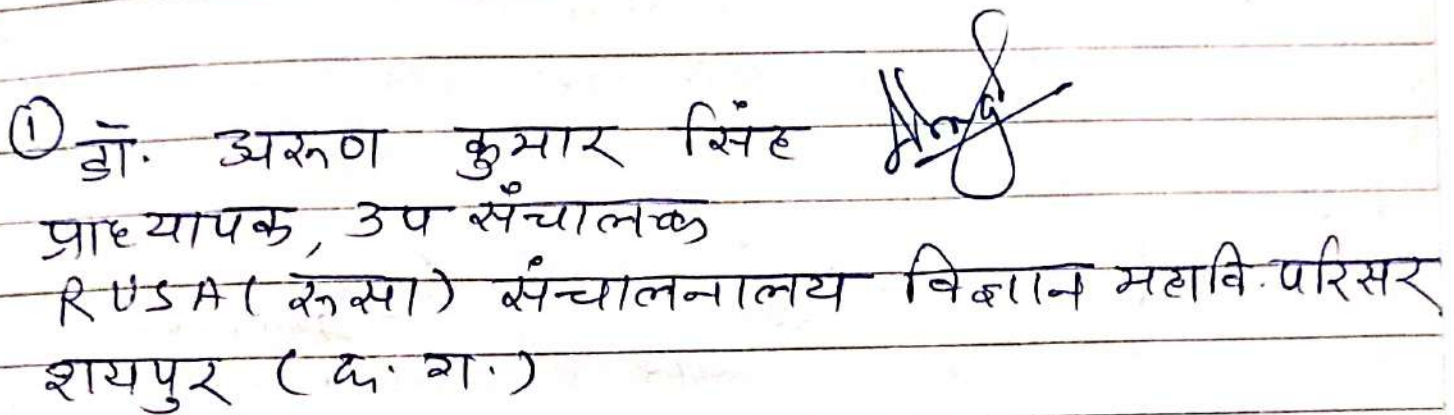 ① डॉ. अरूण कुमार सिंह
प्राध्यापक, उप संचालक
RUSA (रूसा) संचालनालय विज्ञान महावि. परिसर
रायपुर (छ. ग.)